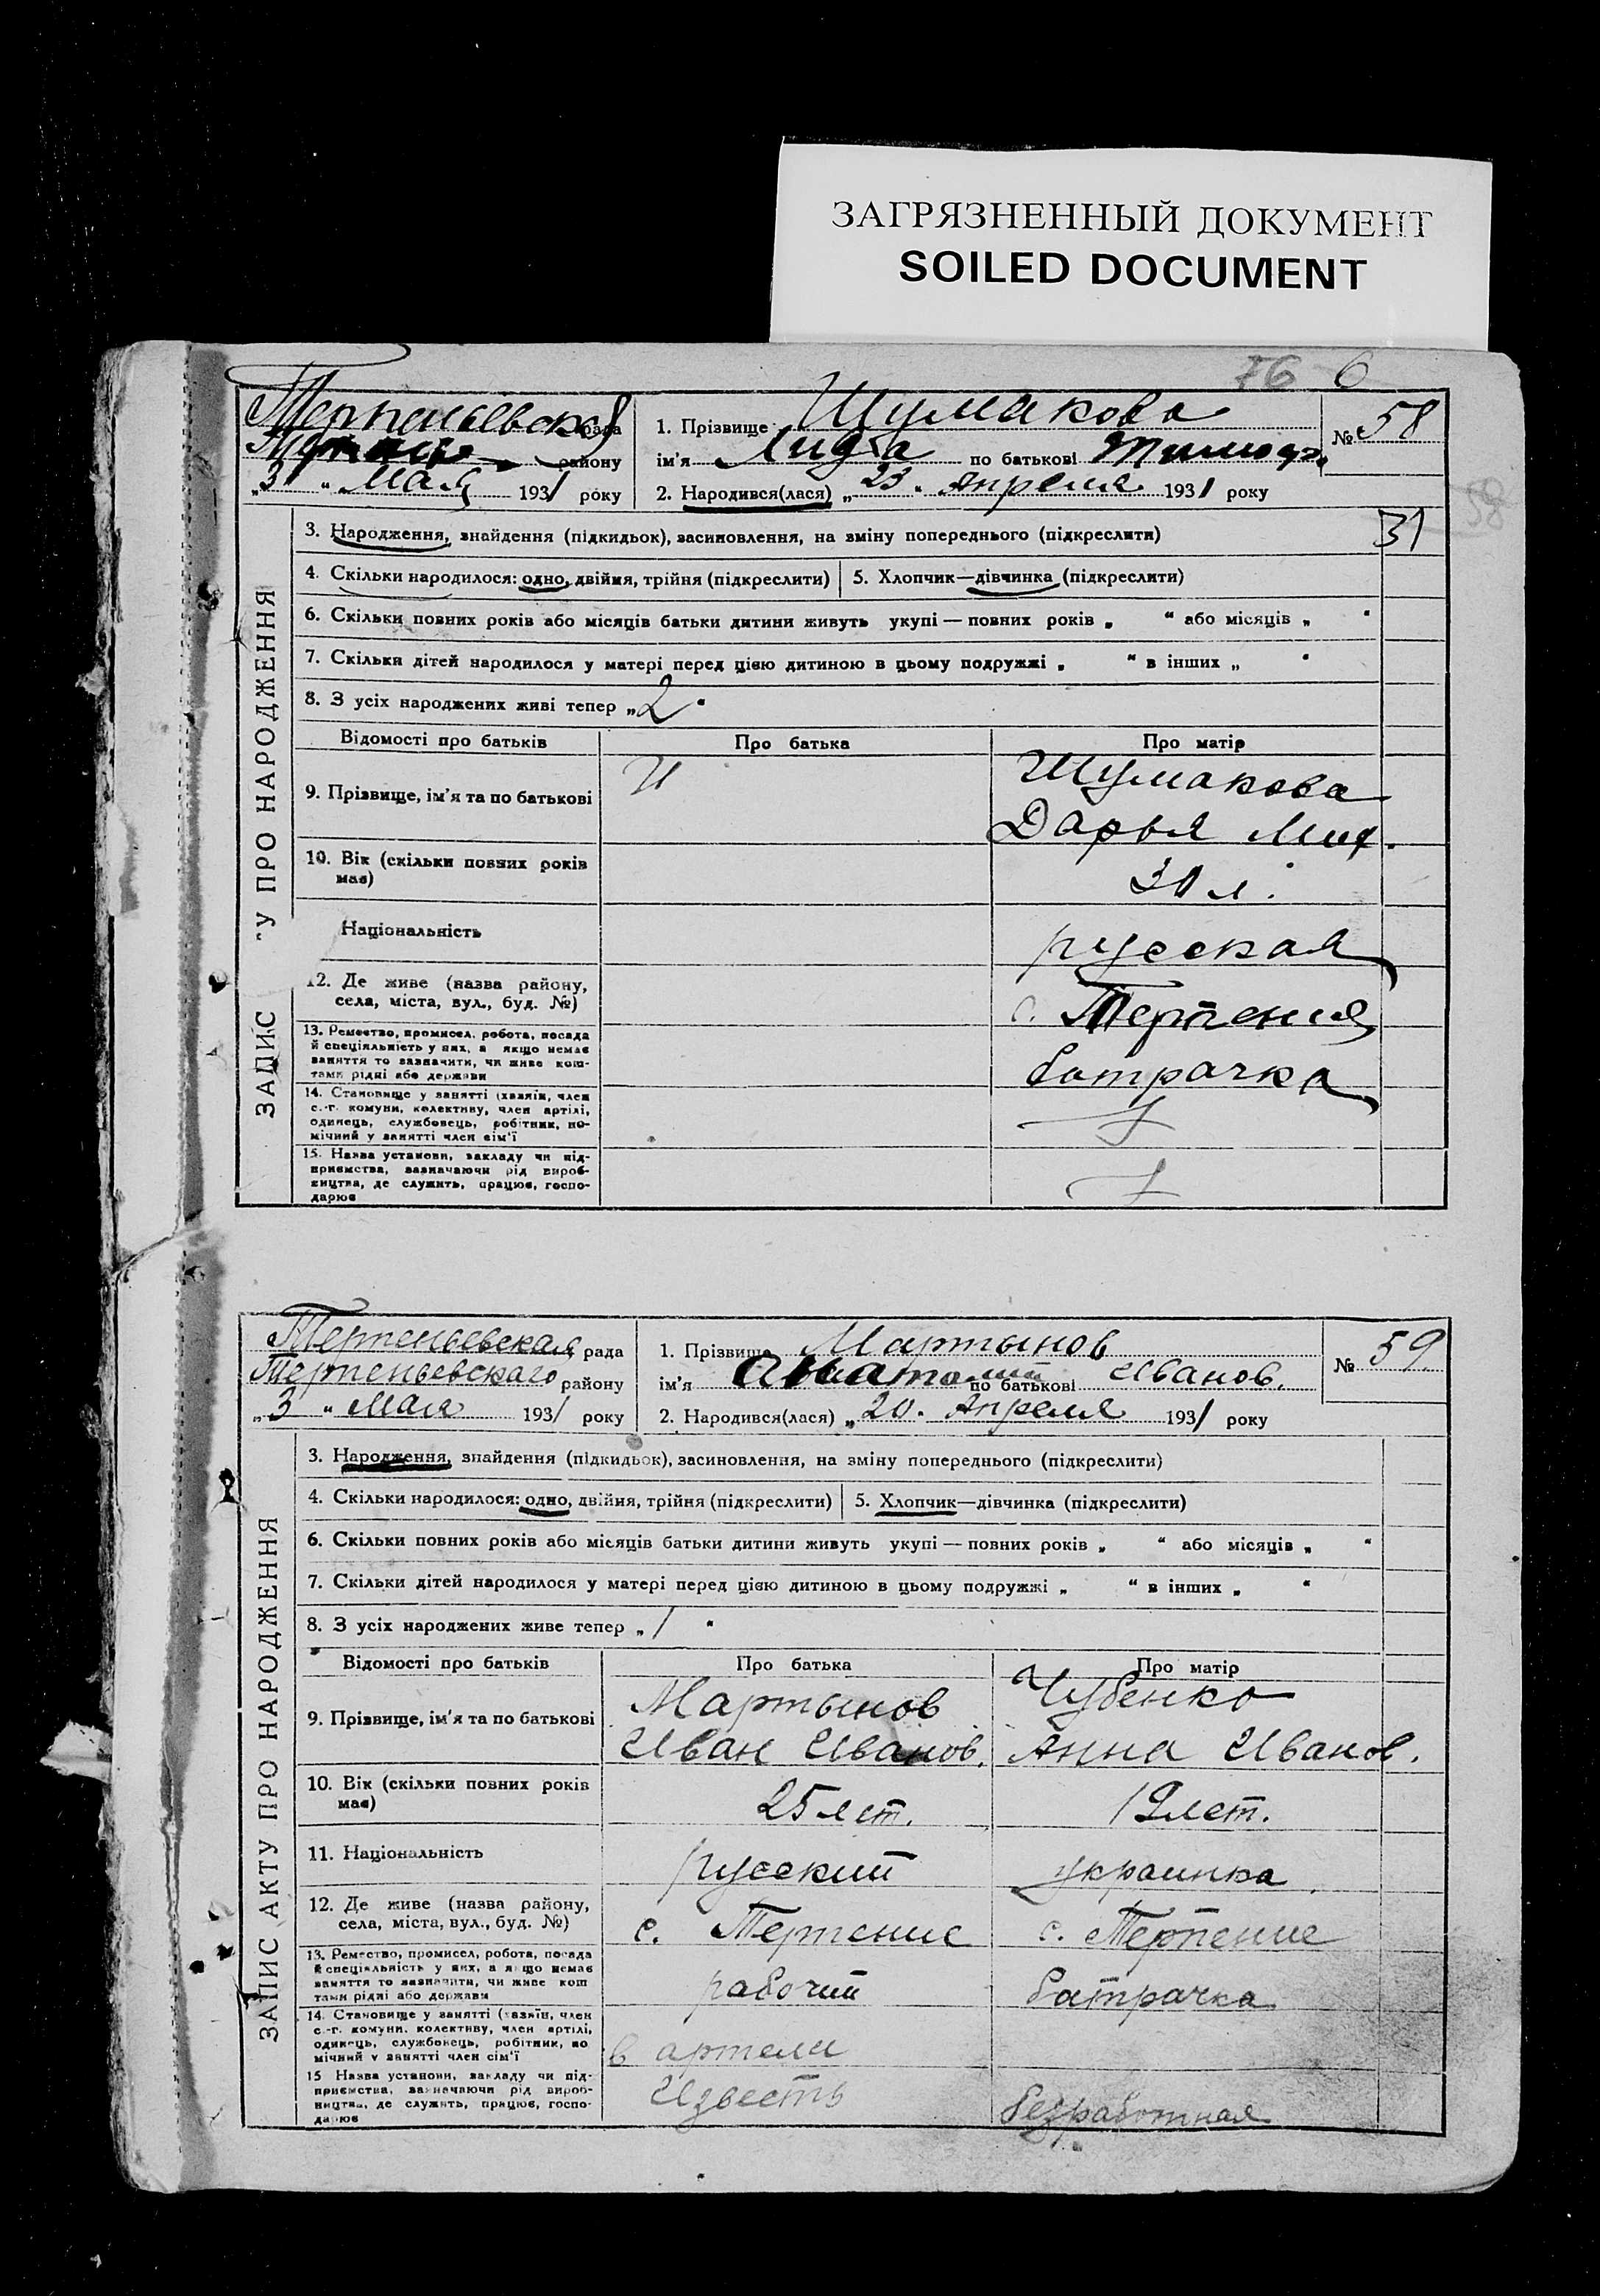 ЗАГРЯЗНЕННЫЙ ДОКУМЕНТ
SOILED DOCUMENT
76 6
Терпеньевская рада
району
„3“ Мая 1931 року
1. Прізвище Шумакова
ім'я Лидia по батькові Тимоф.
2. Народився(лася) „23“ Апреля 1931 року
№ 58
58
31
ЗАПИС У ПРО НАРОДЖЕННЯ
3. Народження, знайдення (підкидьок), засиновлення, на зміну попереднього (підкреслити)
4. Скільки народилося: одно, двійня, трійня (підкреслити) 5. Хлопчик—дівчинка (підкреслити)
6. Скільки повних років або місяців батьки дитини живуть укупі — повних років „ “ або місяців „ “
7. Скільки дітей народилося у матері перед цією дитиною в цьому подружжі „ “ в інших „ “
8. З усіх народжених живі тепер „2“
Відомості про батьків Про батька Про матір
9. Прізвище, ім'я та по батькові
Шумакова
Дарья Мих.
10. Вік (скільки повних років
має)
30 л.
Національність
русская
12. Де живе (назва району,
села, міста, вул., буд. №)
с. Терпения
13. Ремество, промисел, робота, посада
й спеціяльність у них, а якщо немає
заняття то зазначити, чи живе кош-
тами рідні або держави
батрачка
14. Становище у занятті (хазяїн, член
с.-г. комуни, колективу, член артілі,
одинець, службовець, робітник, по-
мічний у занятті член сім'ї
15. Назва установи, закладу чи під-
приємства, зазначаючи рід вироб-
ництва, де служить, працює, госпо-
дарює
Терпеньевская рада
Терпеньевскаго району
„3“ Мая 1931 року
1. Прізвище Мартынов
ім'я Анатолий по батькові Иванов.
2. Народився(лася) „20“ Апреля 1931 року
№ 59
ЗАПИС АКТУ ПРО НАРОДЖЕННЯ
3. Народження, знайдення (підкидьок), засиновлення, на зміну попереднього (підкреслити)
4. Скільки народилося: одно, двійня, трійня (підкреслити) 5. Хлопчик—дівчинка (підкреслити)
6. Скільки повних років або місяців батьки дитини живуть укупі — повних років „ “ або місяців „ “
7. Скільки дітей народилося у матері перед цією дитиною в цьому подружжі „ “ в інших „ “
8. З усіх народжених живе тепер „1“
Відомості про батьків Про батька Про матір
9. Прізвище, ім'я та по батькові
Мартынов Чубенко
Иван Иванов. Анна Иванов.
10. Вік (скільки повних років
має)
25 лет. 19 лет.
11. Національність
русский украинка
12. Де живе (назва району,
села, міста, вул., буд. №)
с. Терпение с. Терпение
13. Ремество, промисел, робота, посада
й спеціяльність у них, а якщо немає
заняття то зазначити, чи живе кош
тами рідні або держави
рабочий батрачка
14. Становище у занятті (хазяїн, член
с.-г. комуни, колективу, член артілі,
одинець, службовець, робітник, по
мічний у занятті член сім'ї
в артели
15 Назва установи, закладу чи під-
приємства, зазначаючи рід вироб-
ництва, де служить, працює, госпо-
дарює
Известь безработная